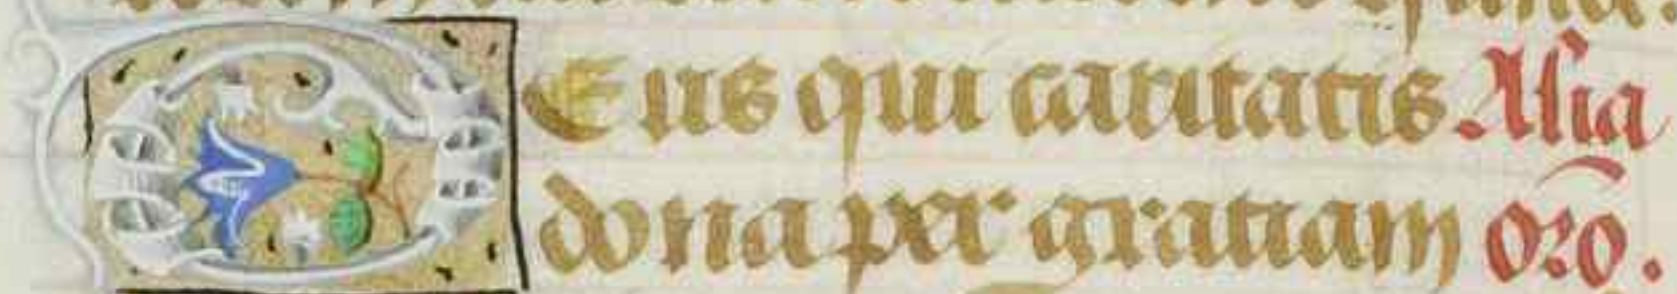 DEus qui caritatis Alia
dona per gratiam oro̅.